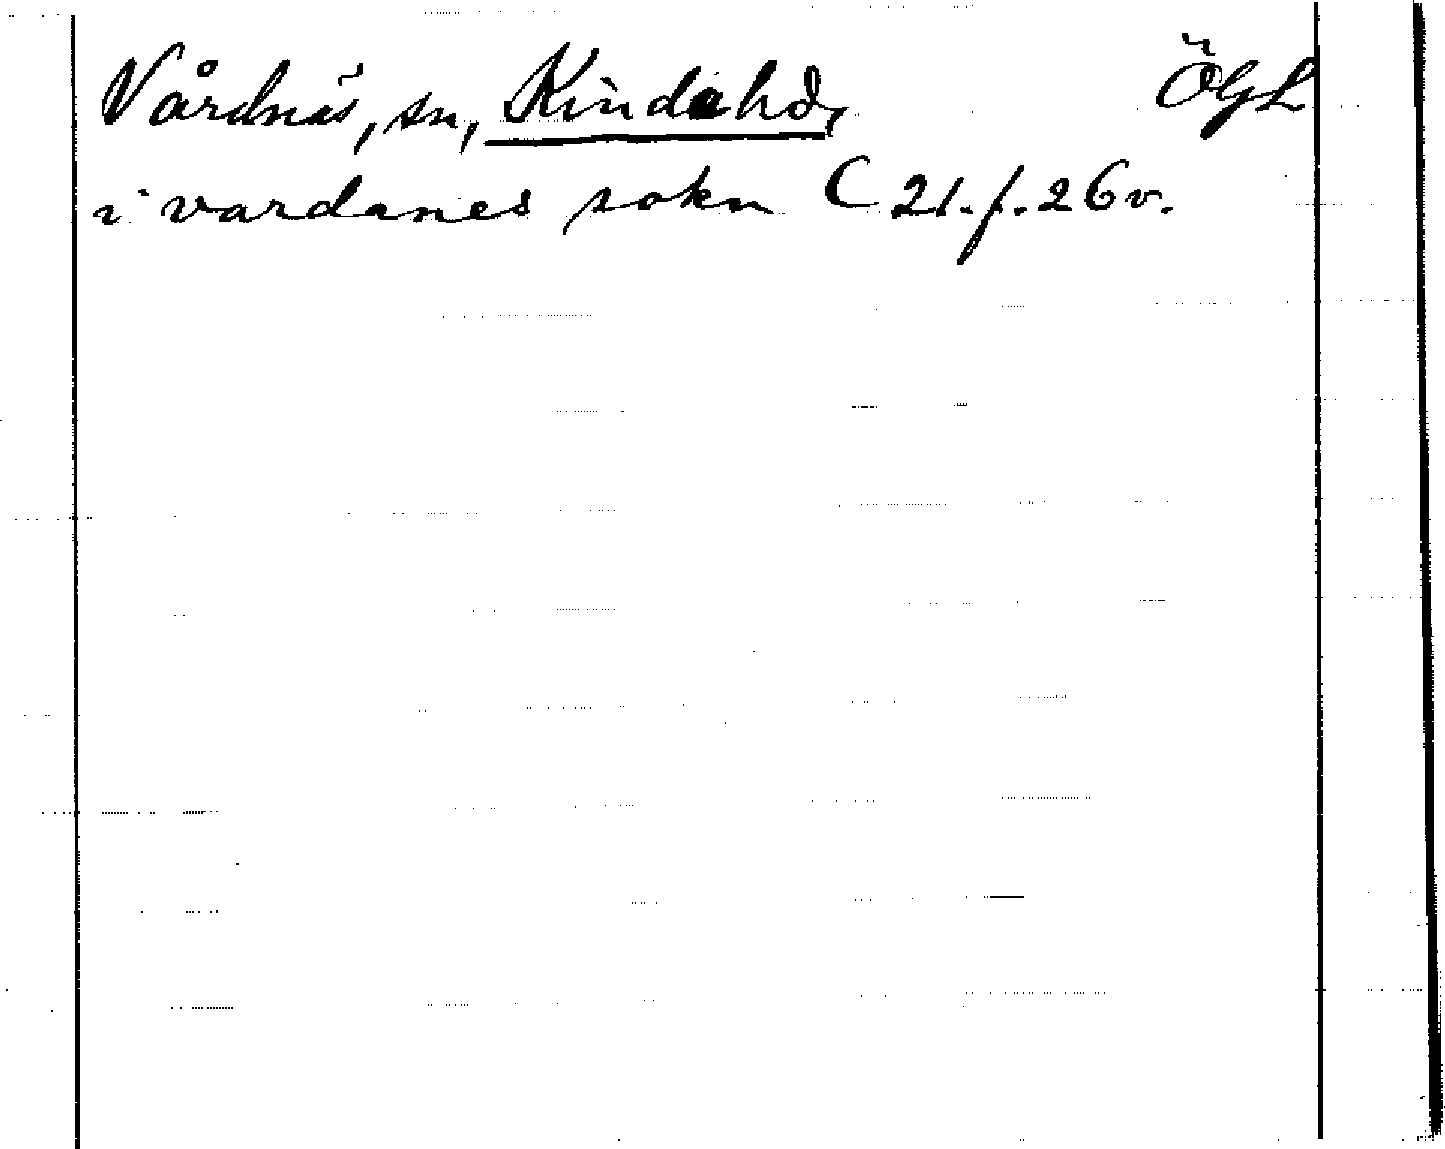 Vårdnäs, sn, Kinda hd, ÖGL
i vardanes sokn C 21. f. 26 v.